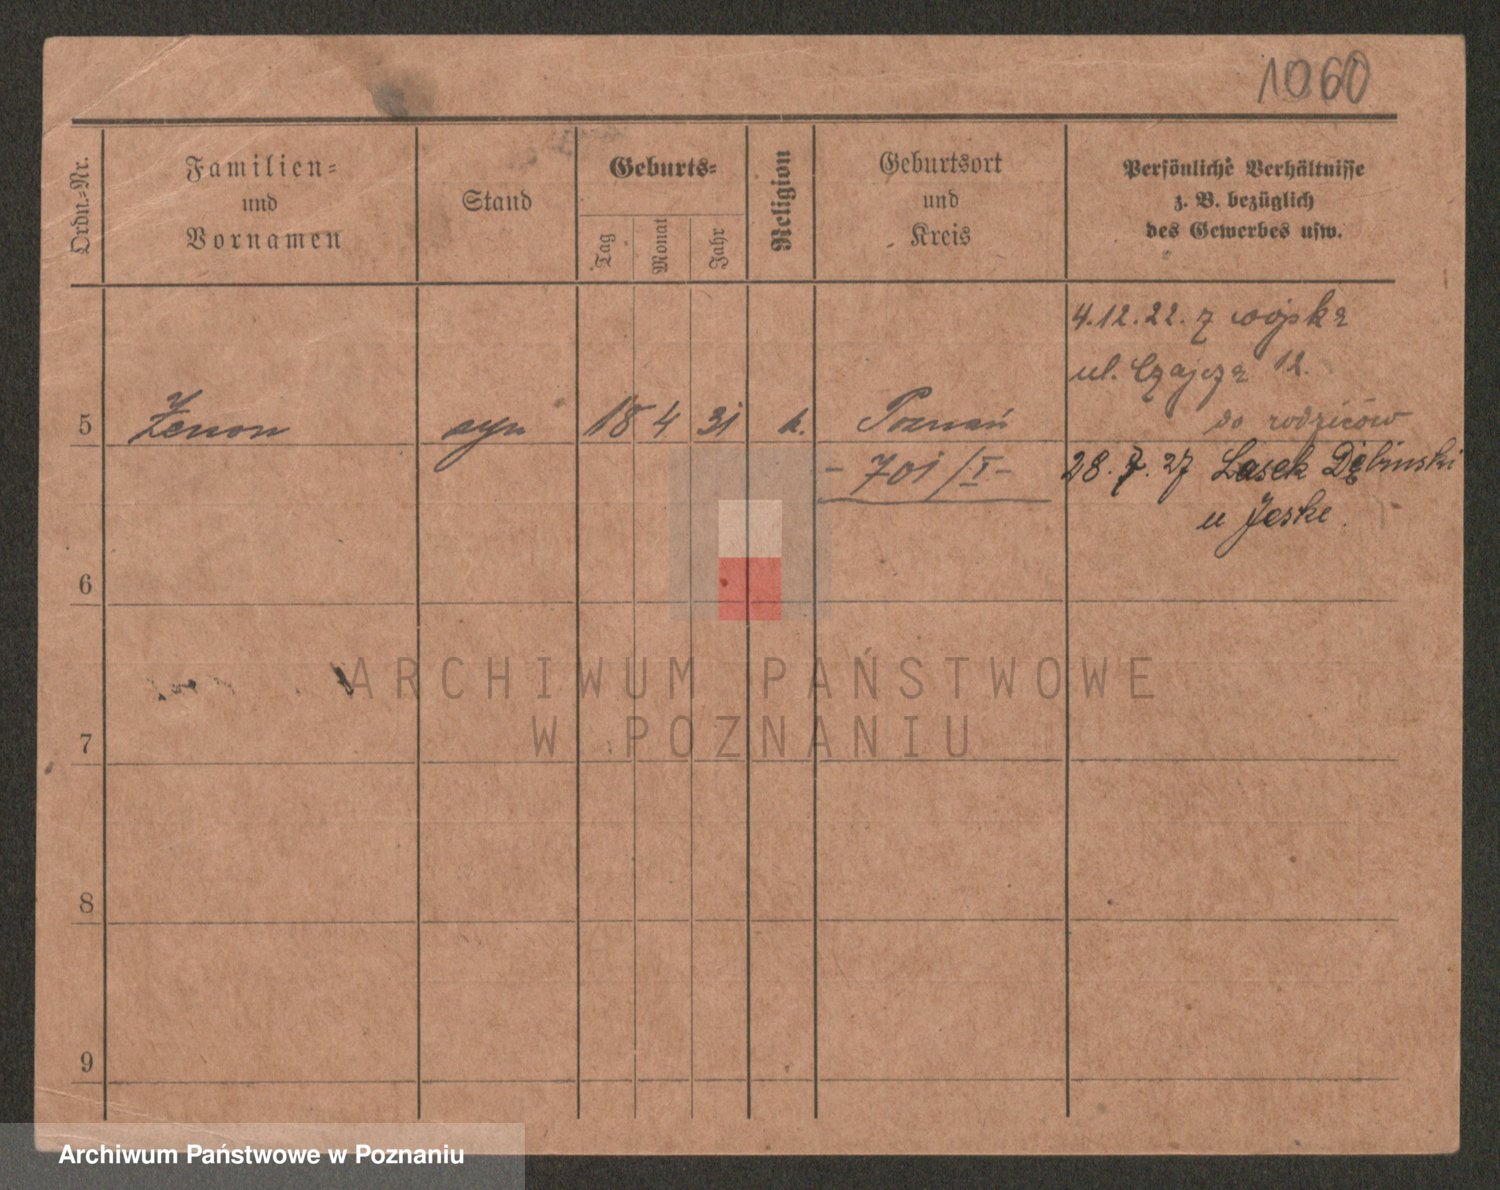 1060
Ordn.-Nr.
Familien-
und
Vornamen
Stand
Geburts-
Tag
Monat
Jahr
Religion
Geburtsort
und
Kreis
Persönliche Verhältnisse
z. B. bezüglich
des Gewerbes usw.
4.12.22. z wojska
ul. Czajcza 12.
do rodziców
5 Zenon syn 18 4 31 k. Poznań
- 701/I -
28.7.27 Lasek Dębinski
u Jeske
6
7
8
9
ARCHIWUM PAŃSTWOWE
W POZNANIU
Archiwum Państwowe w Poznaniu